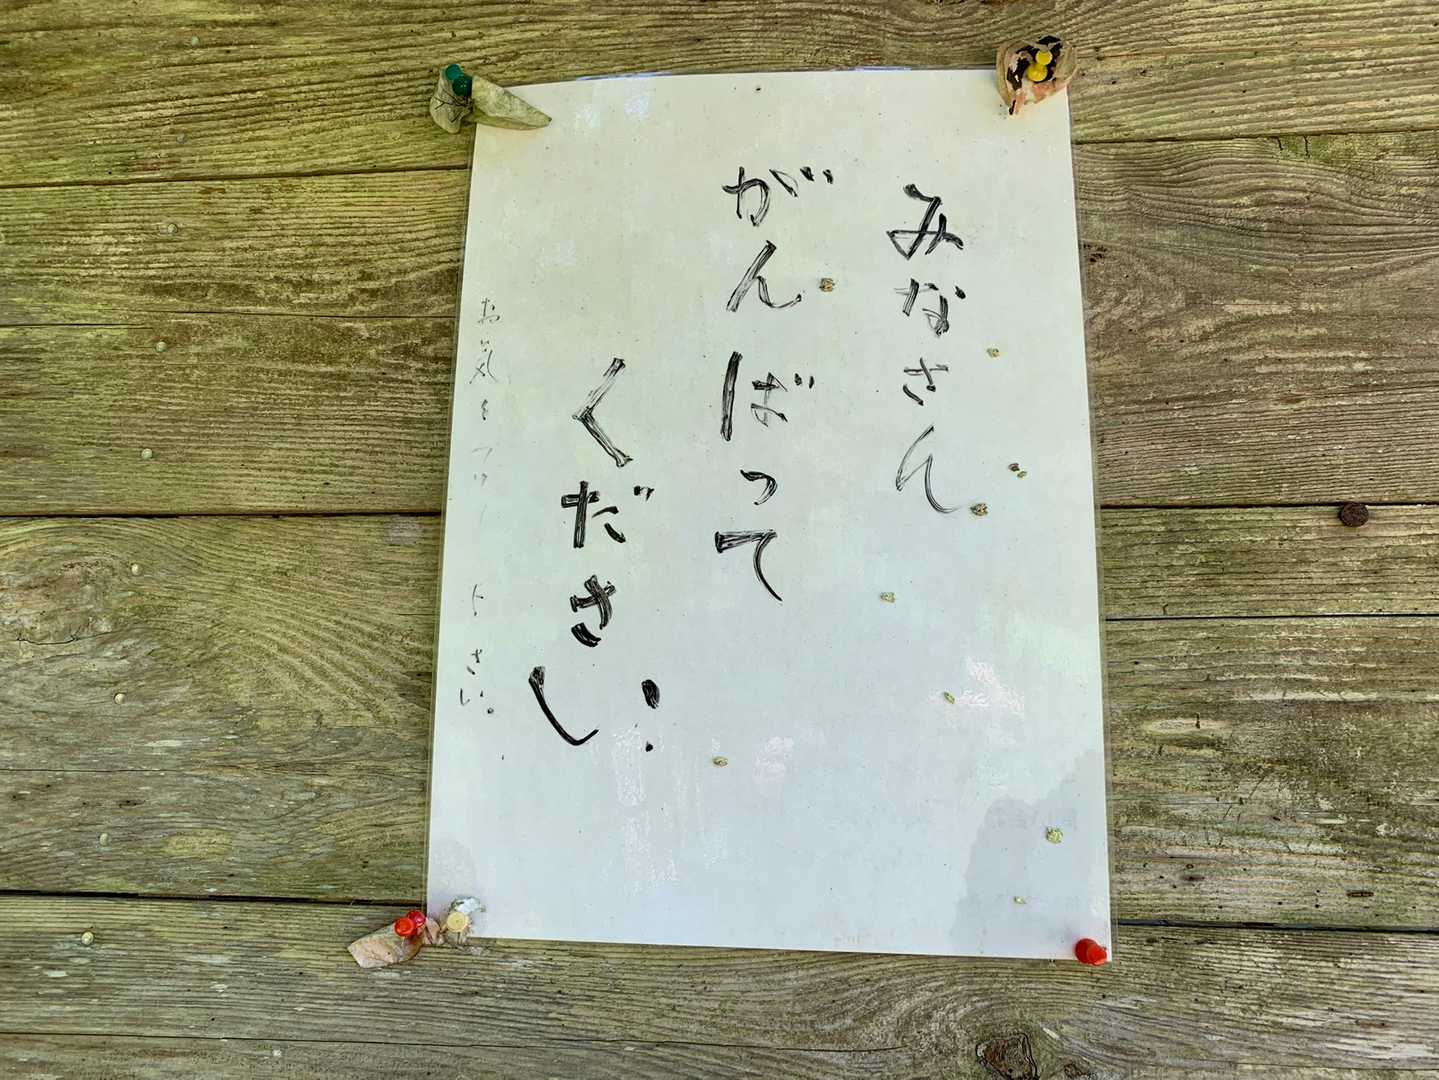 みなさん
がんばって
ください!
お気をつけ下さい。